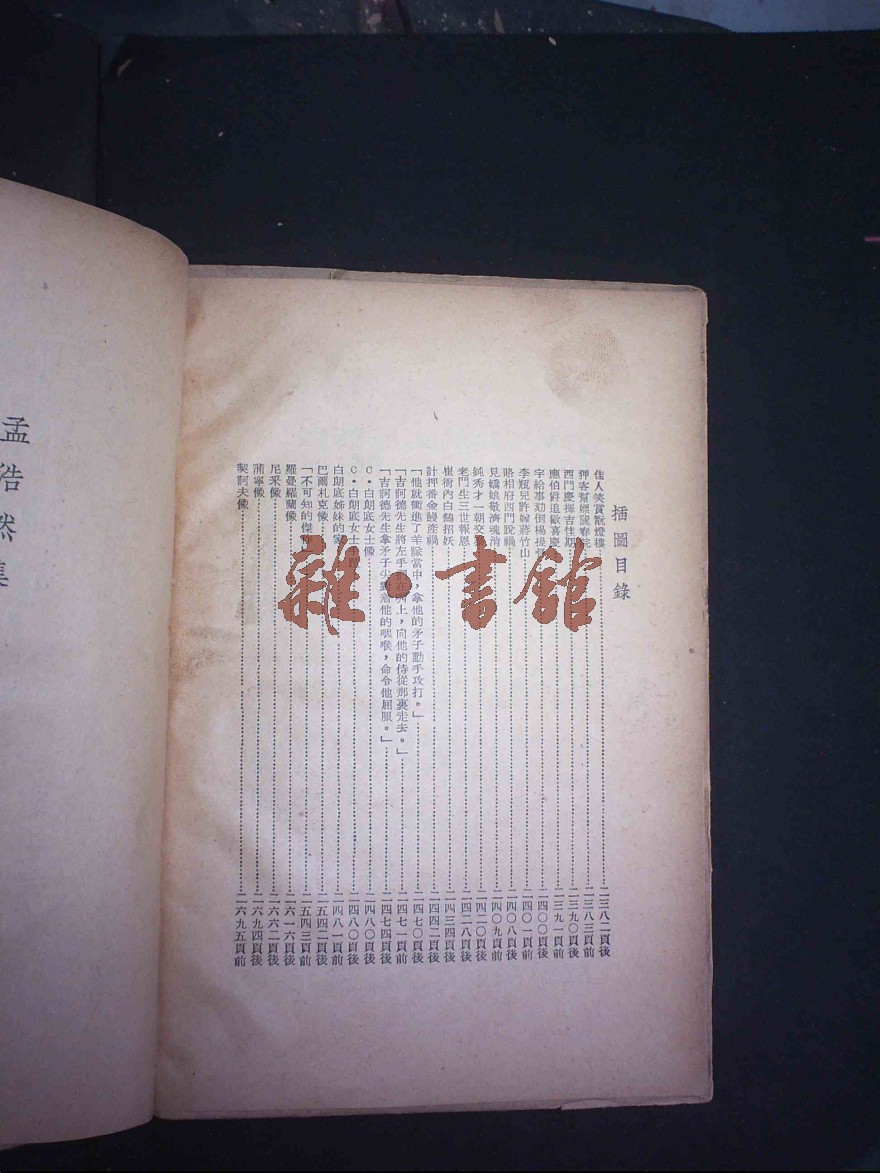 插圖目錄
佳人笑賞翫燈樓……一三八二頁後
狎客幫嫖麗春院……一三八三頁前
西門慶擇吉佳期……一三九〇頁後
應伯爵追歡喜慶……一三九一頁前
宇給事劾倒楊提督……一四〇〇頁後
李瓶兒許嫁蔣竹山……一四〇一頁前
賂相府西門脫禍……一四〇八頁後
見嬌娘敬濟魂消……一四〇九頁後
鈍秀才一朝交……一四二〇頁後
老門生三世報恩……一四二八頁後
崔衙內白鷂招妖……一四三四頁後
計押番金鰻產禍……一四四二頁後
「他就衝進了羊隊當中，拿他的矛子動手攻打。」……一四七〇頁後
「吉訶德先生將左手上，向他的侍從那裏走去。」……一四七一頁前
「吉訶德先生拿矛子尖對着他的咽喉，命令他屈服。」……一四七四頁後
C·白朗底女士像……一四八〇頁後
C·白朗底女士手……一四八〇頁後
白朗底姊妹的家……一四八一頁後
巴爾札克像……一五四二頁後
「不可知的傑……一五四三頁前
羅曼羅蘭像……一六一六頁後
尼采像……一六六二頁後
蒲寧像……一六九四頁後
契訶夫像……一六九五頁前
孟浩然集
雜·書館